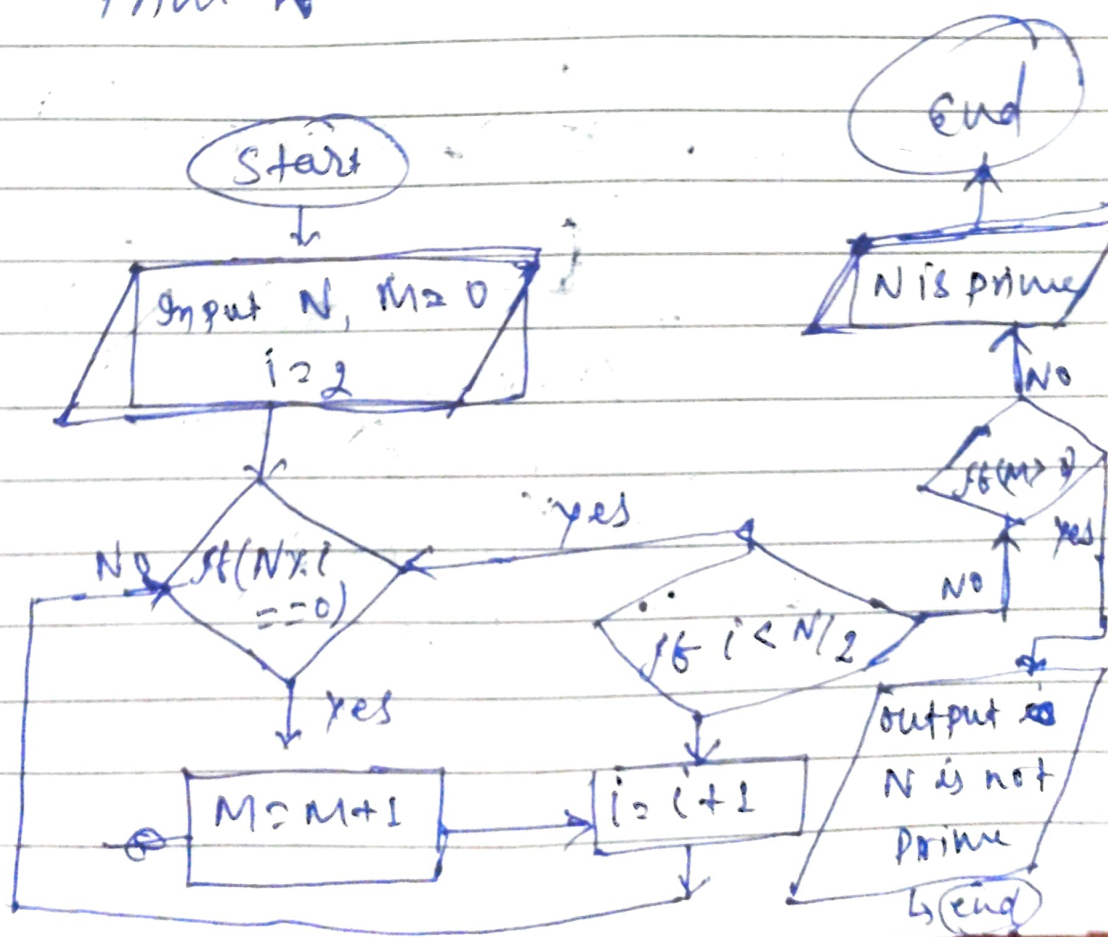 Start
Input N, M=0
i=2
If(N%i
==0)
No
Yes
M=M+1
i=i+1
If i<N/2
yes
No
If(M>
No
yes
N is prime
End
output
N is not
prime
↳ end